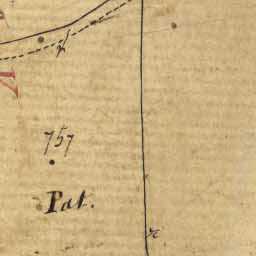 757
Pat.